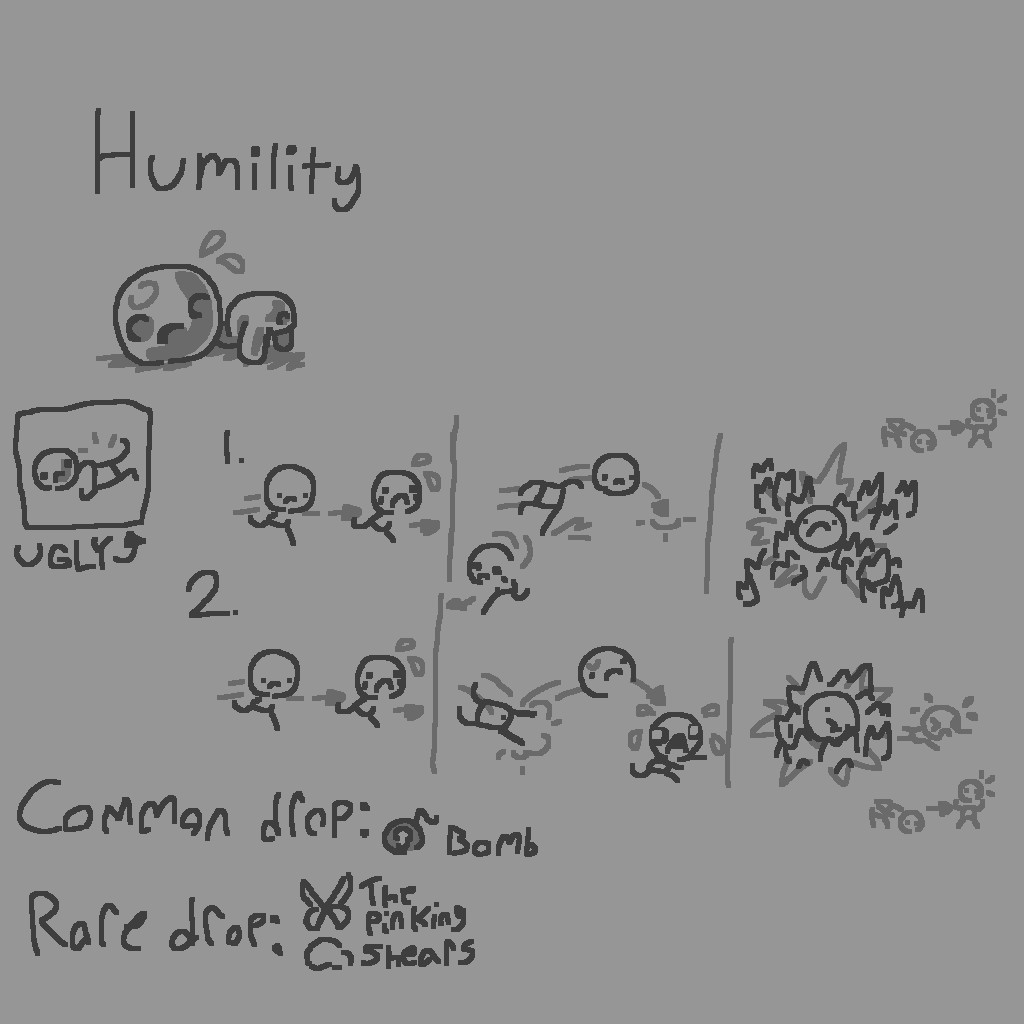 Humility
UGLY
1.
2.
Common drop: Bomb
Rare drop: The
Pinking
Shears